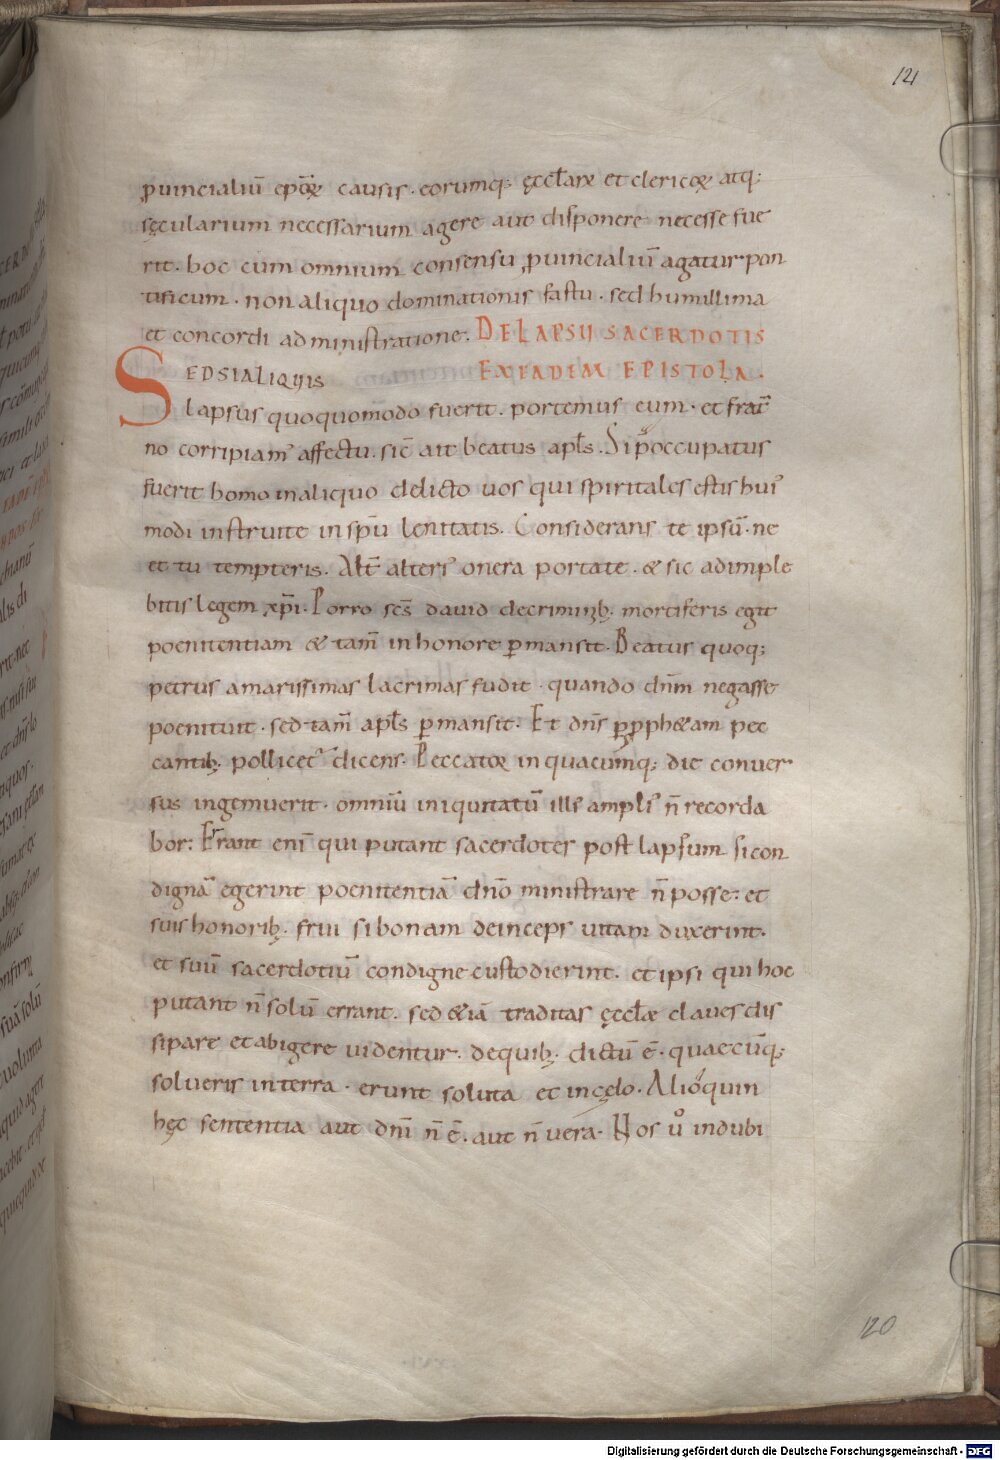 121
ꝓuincialiū ep̄oꝝ causis. eorumq; ęccl̄arū et clericoꝝ atq;
sęcularium necessarium agere aut disponere necesse fue
rit. hoc cum omnium consensu ꝓuincialiū agatur pon
tificum. non aliquo dominationis fastu. sed humillima
et concordi administratione. DE LAPSU SACERDOTIS
EX EADEM EPISTOLA.
SED SI ALIQUIS
lapsus quoquomodo fuerit. portemus eum. et frat̄
no corripiam᾽ affectu. sic̄ ait beatus apl̄s. Si p̄occupatus
fuerit homo in aliquo delicto uos qui spiritales estis hui᾽
modi instruite in sp̄u lenitatis. Considerans te ipsū. ne
et tu tempteris. Alt̄ alteri᾽ onera portate. & sic adimple
bitis legem xp̄i. Porro sc̄s dauid de criminib; mortiferis egit
poenitentiam & tam̄ in honore ꝑmansit. Beatus quoq;
petrus amarissimas lacrimas fudit. quando dn̄m negasse
poenituit. sed tam̄ apl̄s ꝑmansit. Et dn̄s ꝑ ꝓph&am pec
cantib; pollicet᾽ dicens. Peccatoꝝ in quacūmq; die conuer
sus ingemuerit. omniū iniquitatū illi᾽ ampli᾽ n̄ recorda
bor: Errant eni᾽ qui putant sacerdotes post lapsum si con
dignā egerint poenitentiā dn̄o ministrare n̄ posse: et
suis honorib; frui si bonam deinceps uitam duxerint.
et suū sacerdotiū condigne custodierint. et ipsi qui hoc
putant n̄ solū errant. sed &iā traditas ęccl̄ae claues dis
sipare et abigere uidentur. de quib; dictū ē. quaecūq;
solueris in terra. erunt soluta et in cęlo. Alioquin
hęc sententia aut dn̄i n̄ ē. aut n̄ uera. Nos uº indubi
120
Digitalisierung gefördert durch die Deutsche Forschungsgemeinschaft - DFG